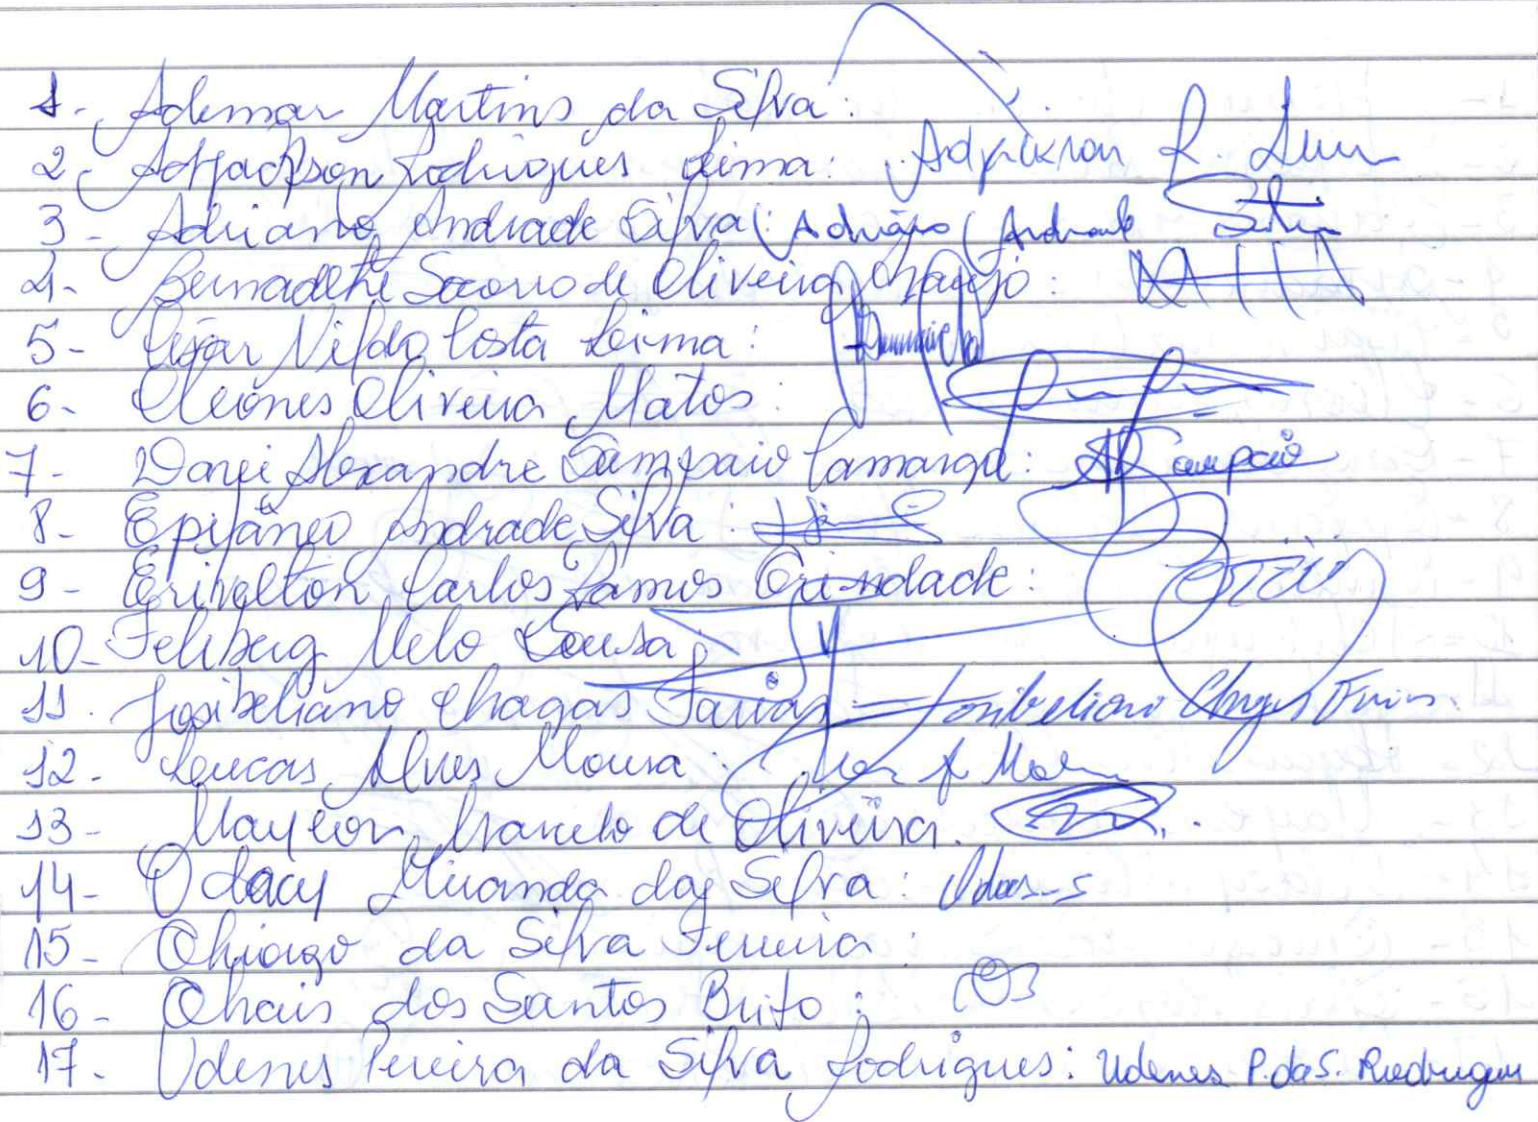 1- Ademar Martins da Silva:
2- Adjackson Rodrigues Lima: Adjackson R. Lima
3- Adriano Andrade Silva: Adriano Andrade Silva
4- Bernadete Socorro de Oliveira Araújo:
5- César Nildo Costa Leima:
6- Cleones Oliveira Matos:
7- Darci Alexandre Sampaio Camargo: Sampaio
8- Epifâneo Andrade Silva:
9- Erivelton Carlos Ramos Trindade:
10- Feliberg Melo Sousa:
11. Josibeliano Chagas Farias Josibeliano Chagas Farias.
12- Leucas Alves Moura:
13- Maycon Marcelo de Oliveira.
14- Odacy Miranda da Silva:
15- Thiago da Silva Ferreira:
16- Thais dos Santos Brito:
17- Udenes Pereira da Silva Rodrigues: Udenes P. da S. Rodrigues